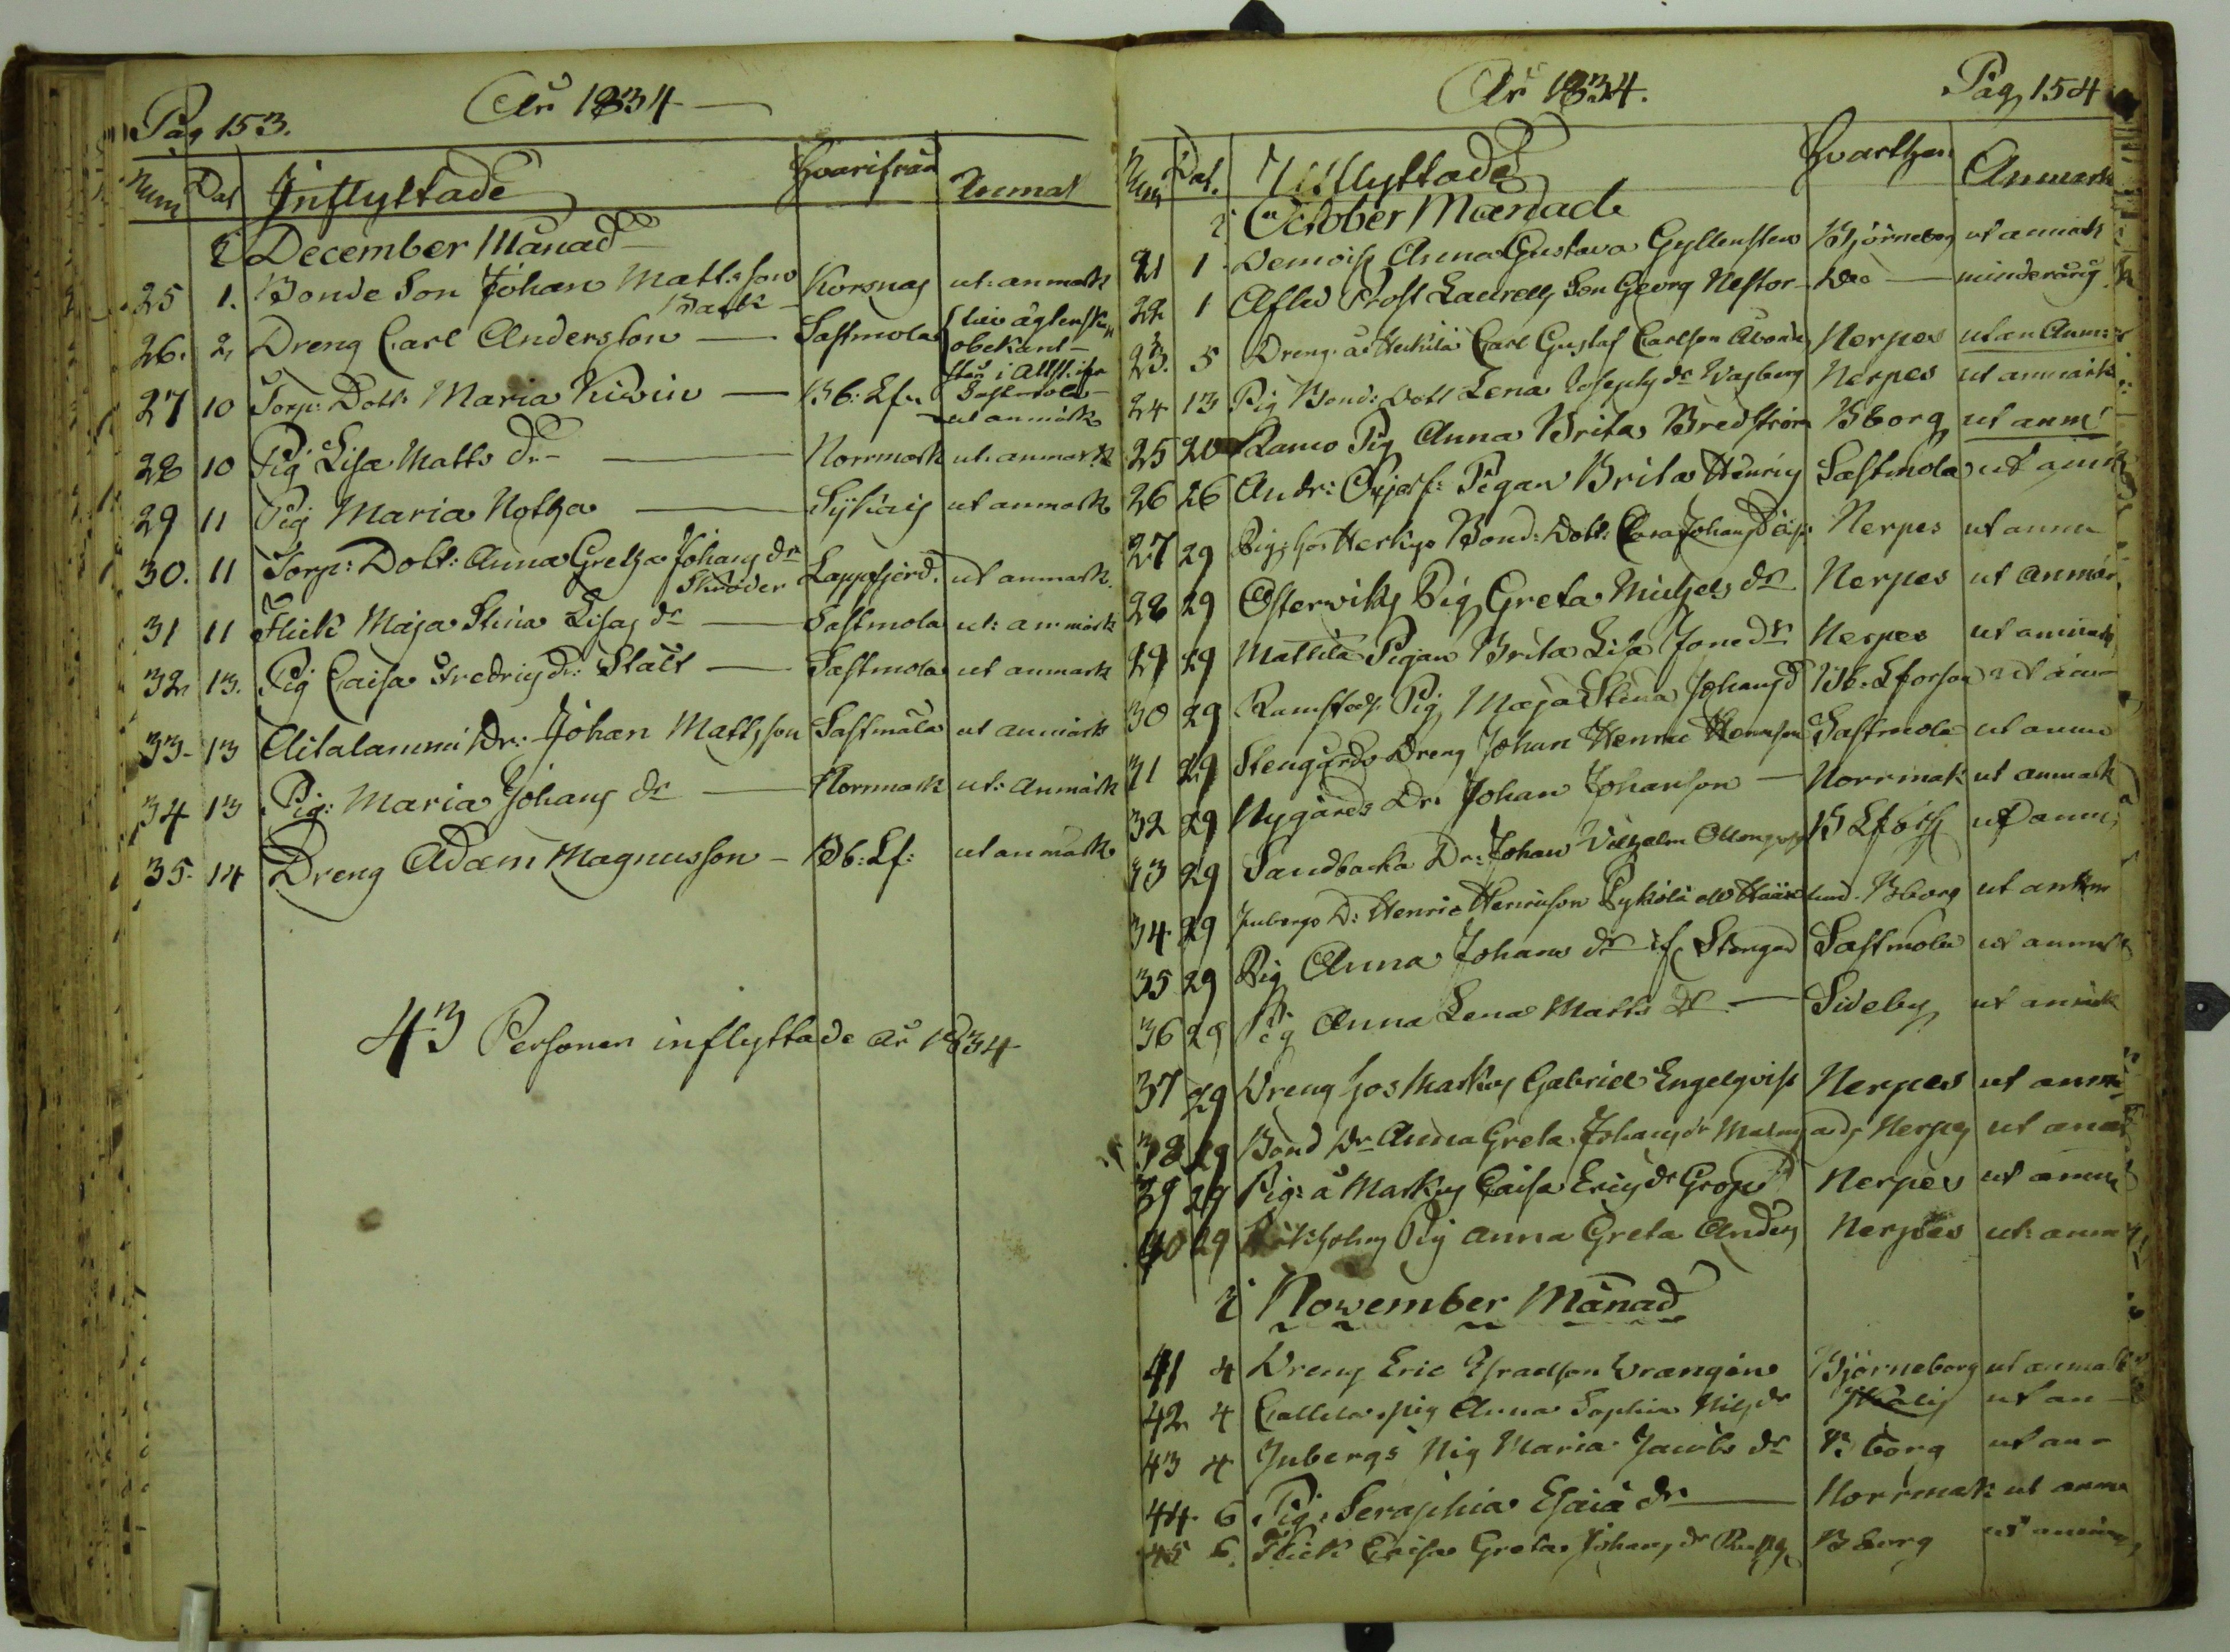 Pag 153.
År 1834
Num Dat Inflyttade Hvarifrån Anmark
i December Månad
25 1. Bonde Son Johan Mattsson Korsnäs ut: anmärk
26. 2, Dreng Carl Andersson Sastmola
obekant
27 10 Torp: Dott: Maria Kiviu Bb: Lf:
Sastmola
ut anmärk
28 10 Pig Lisa Matts dr Norrmark ut: anmark
29 11 Pig Maria ut anmark
30. 11 Torp: Dott: Anna Gretha Johans dr Lappfjerd. ut anmark.
Skröder
31 11 Flick Maja Stina Lisas dr Sastmola ut: anmärk
32 13. Pig Caisa Fredrics dr: Stält Sastmola ut anmark
33 13 Dr: Johan Mattsson Sastmola ut anmärk
34 13 Pig: Maria Johans dr Norrmark ut: anmärk
35. 14 Dreng Adam Magnusson Bb: Lf: ut anmärk
43 Personer inflyttade År 1834
År 1834.
Pag, 154
Num Dat. Utflyttade Hvarthen Anmark
i October Månad
21 1 Demois Anna Gustava Gyllensten Björneborg ut anmärk
22 1 Afled Prost Laurells Son Georg Nestor Dito minderårig
23. 5 Dreng. å Heikilä Carl Gustaf Carlson Nerpes utan Anm:
24 13 Pig Bond: Dott Lena Josephs dr Wasberg Nerpes ut anmärk
25 20 Pig Anna Brita Bredström Bborg ut anm:
26 26 Andr: Pigan Brita Henrics Sastmola ut anm
27 29 Pig: hos Bond: Dott: Johans Nerpes ut anm
28 29 Österviks Pig Greta Michels dr Nerpes ut anmär
29 29 Mattila Pigan Brita Lisa Jone dr Nerpes ut anmark
30 29 Pig Maja Stina Johans d Bb: Lforson ut an
31 29 Stengårds Dreng Johan Henric Henrson Sastmola ut anm
32 29 Nygårds Dr: Johan Johanson Norrmak ut anmark
33 29 Sandbacka Dr: Johan Wilhelm B Lfors ut anm
34 29 Jnbergs D: Henric Henricson Bborg ut anm
35 29 Pig Anna Johans dr Sastmola ut anmk
36 29 Pig Anna Lena Matts dr Sideby ut anmk
37 29 Dreng hos Gabriel Engelqvist Nerpes ut anm
38 29 Bond Dr Anna Greta Johans dr Nerpes ut anm
39 29 Pig: å Caisa Erics dr Grop Nerpes ut anm
40 29 Pig Anna Greta Anders Nerpes ut: anm
i November Månad
41 4 Dreng Eric Wrangén Björneborg ut anmark
42 4 pig Anna Sophia Nils dr ut an
43 4 Jnbergs Pig Maria Jacobs dr B borg ut an
44 6 Pig: Seraphia Esaiä dr Norrmak ut anm
45 6. Flick Caisa Greta Johans dr B borg ut anm